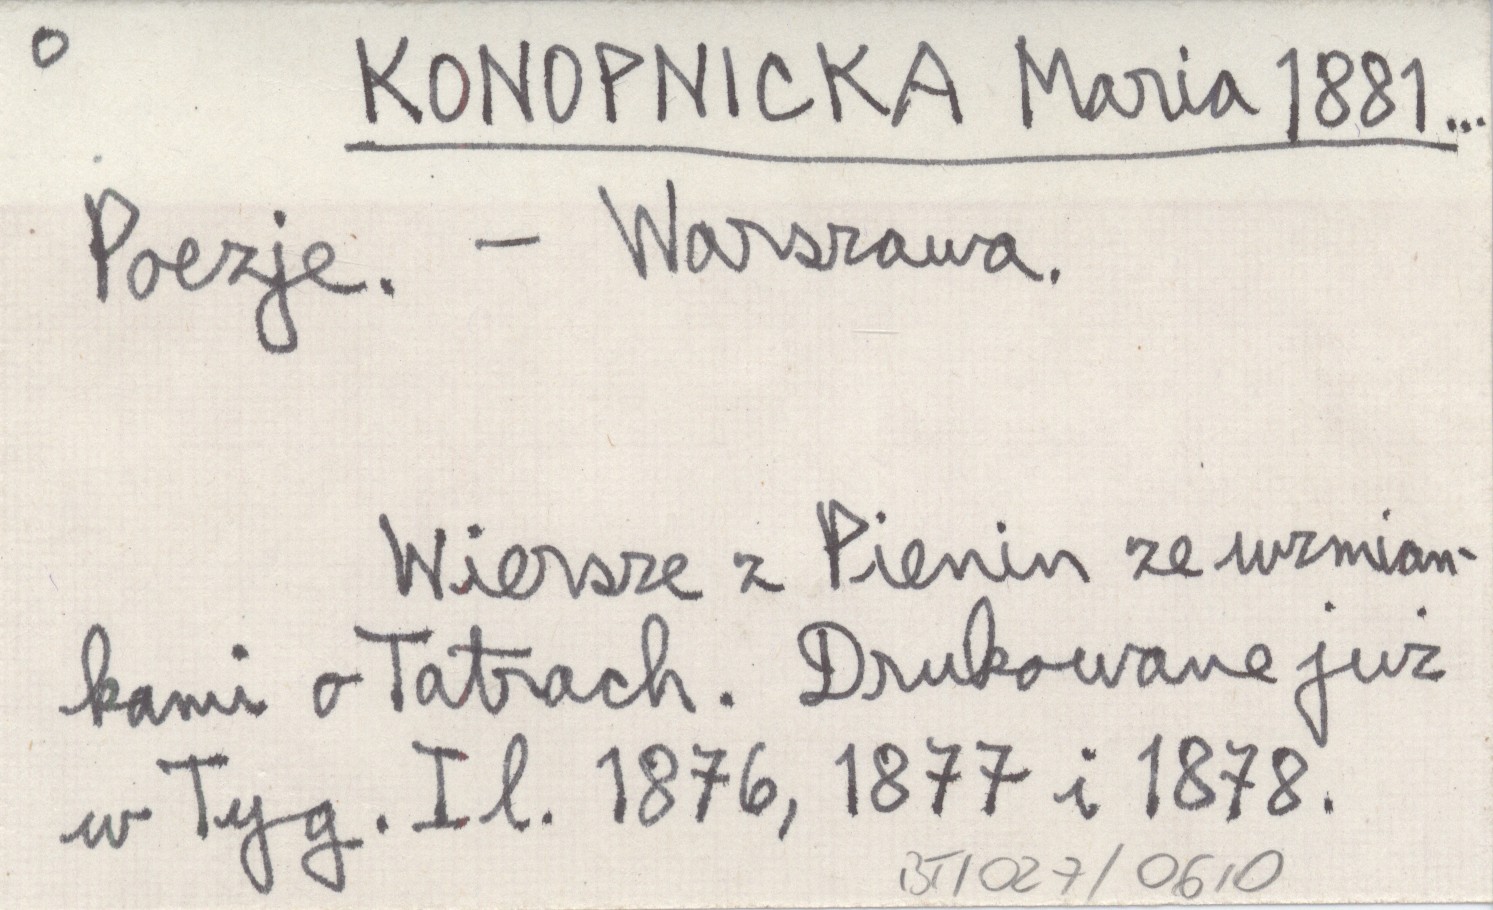 o KONOPNICKA Maria 1881...
Poezje. – Warszawa.
Wiersze z Pienin ze wzmian-
kami o Tatrach. Drukowane już
w Tyg. Il. 1876, 1877 i 1878.
BT/027/0610